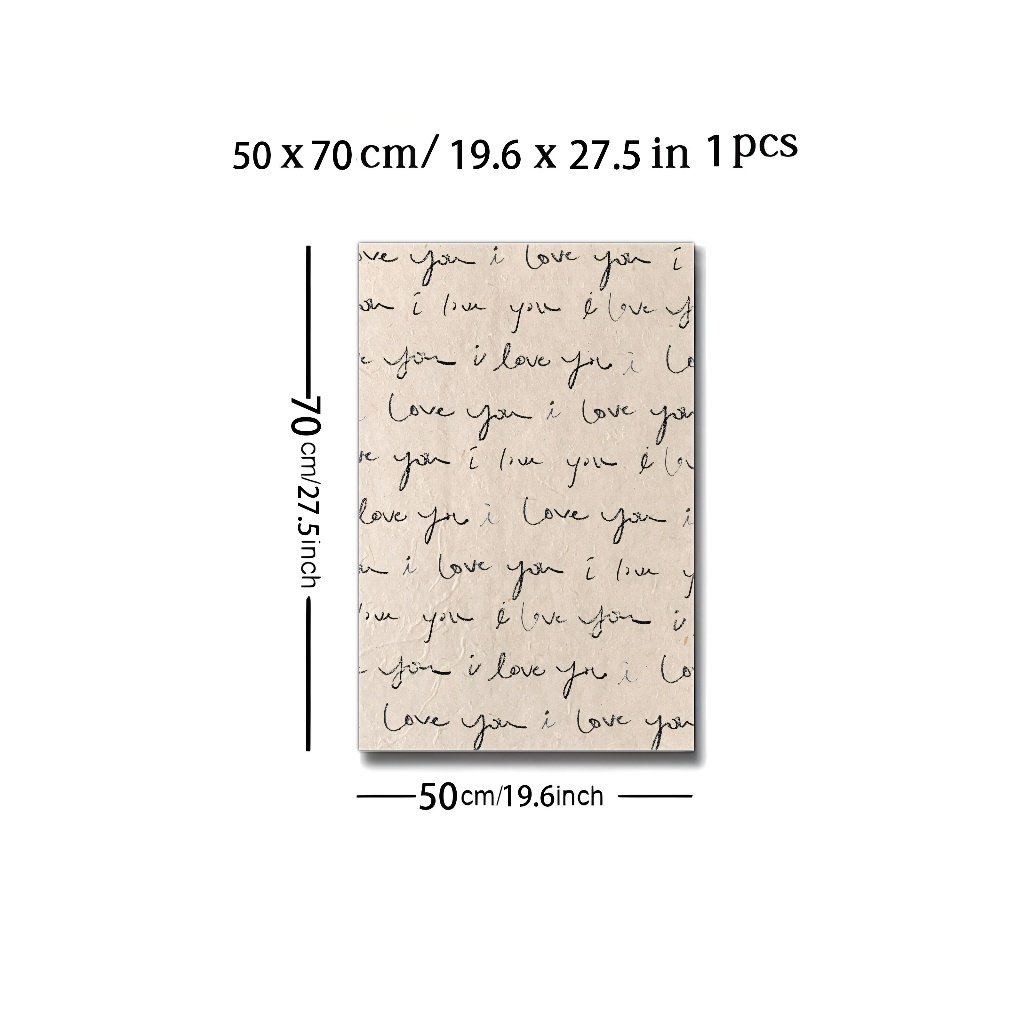 50 x 70 cm/ 19.6 x 27.5 in 1 pcs
ove you i love you i
ou i love you i love y
e you i love you i lo
love you i love you
ve you i love you i lov
love you i love you i
u i love you i love y
love you i love you i
e you i love you i lo
love you i love you
70 cm/27.5inch
50cm/19.6inch